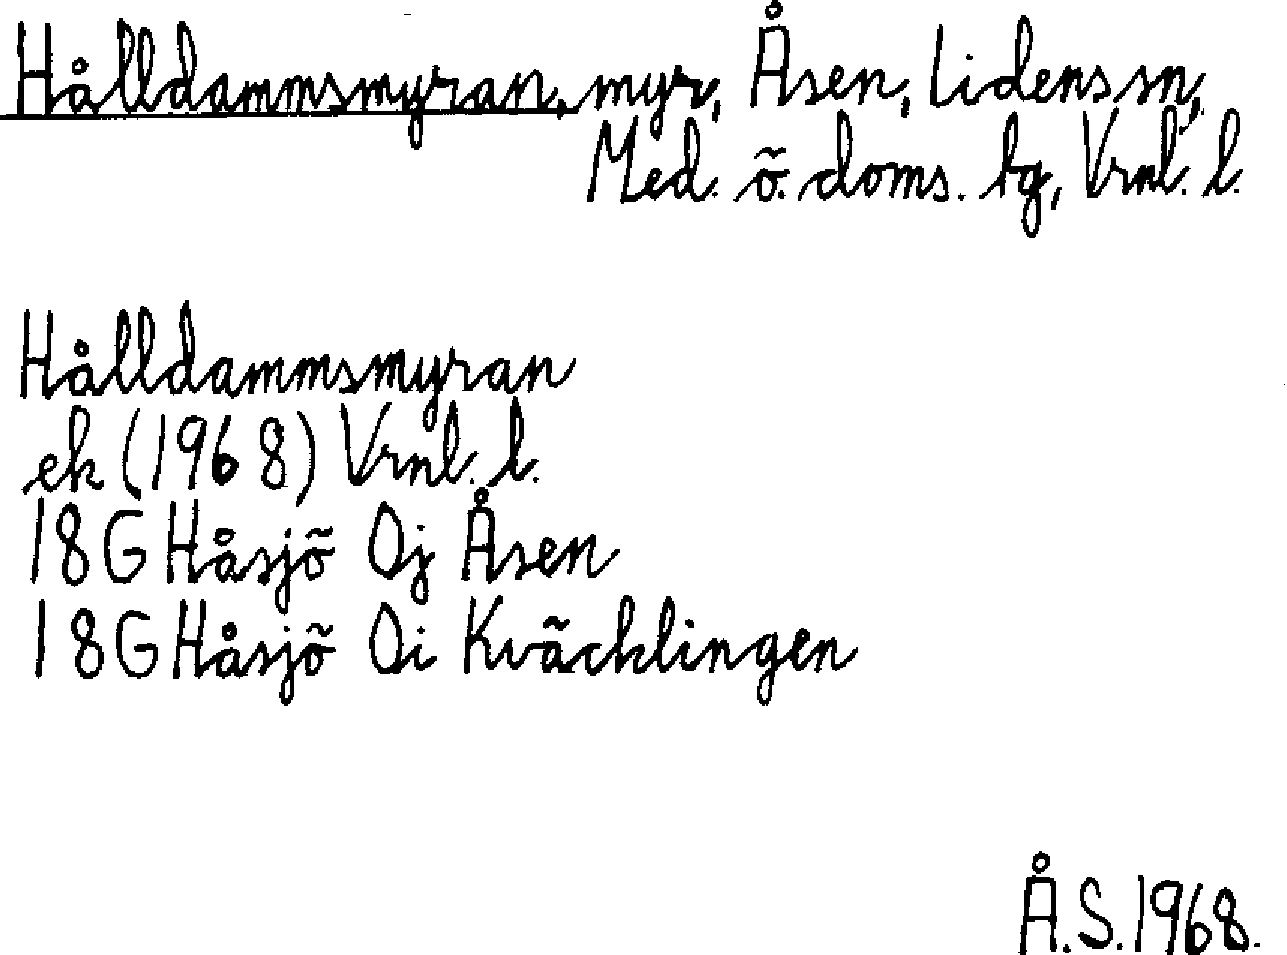 Hålldammsmyran, myr, Åsen, Lidens sn,
Med. ö. doms. tg, Vrnl. l.
Hålldammsmyran
ek (1968) Vrnl. l.
18G Håsjö 0j Åsen
18G Håsjö 0i Kväcklingen
Å.S. 1968.